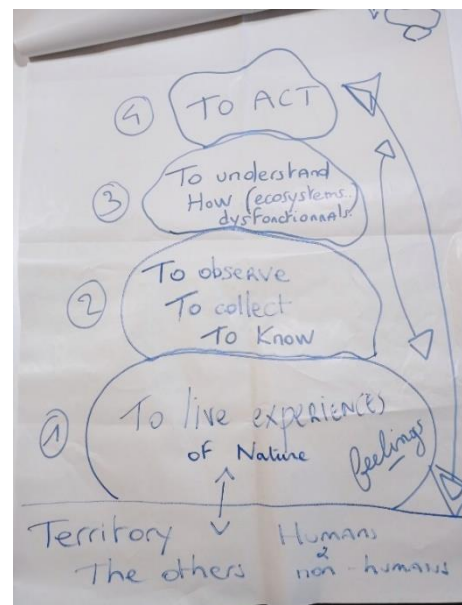 4
To ACT
3
To understand
How (ecosystems..
dysfonctionnals.
2
To observe
To collect
To Know
1
To live experiences
of Nature
feelings
Territory
The others
Humans
2
non-humans